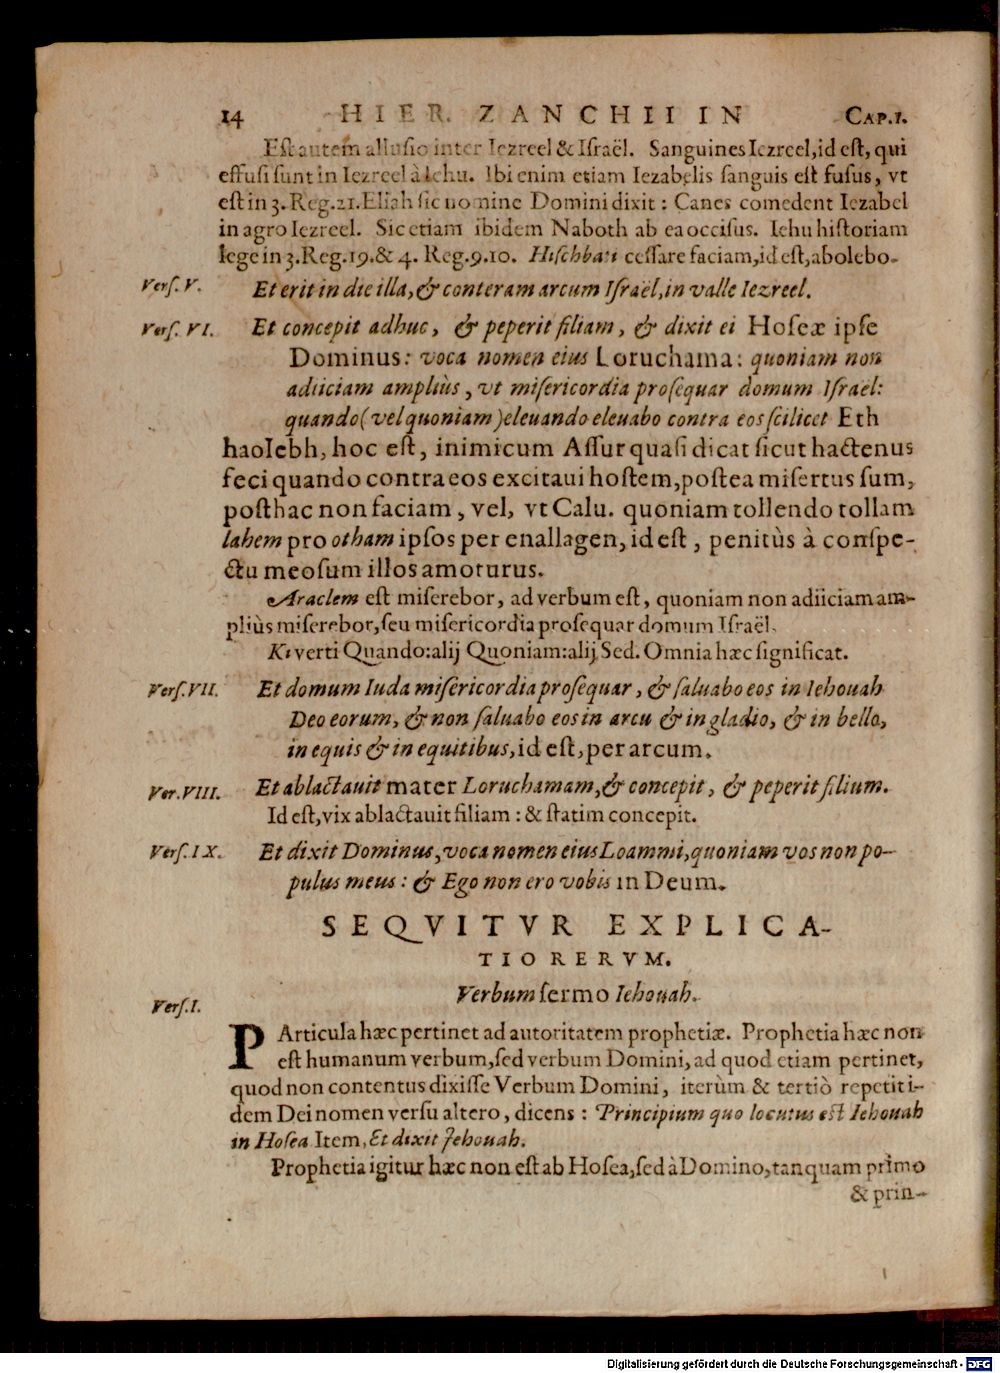 14 HIER. ZANCHII IN CAP.I.
Est autem allusio inter Iezreel & Israël. Sanguines Iezreel, id est, qui
effusi sunt in Iezreel à Iehu. Ibi enim etiam Iezabelis sanguis est fusus, vt
est in 3. Reg. 21. Eliah sic nomine Domini dixit: Canes comedent Iezabel
in agro Iezreel. Sic etiam ibidem Naboth ab ea occisus. Iehu historiam
lege in 3. Reg. 19. & 4. Reg. 9. 10. Hischbati cessare faciam, id est, abolebo.
Vers. V. Et erit in die illa, & conteram arcum Israël, in valle Iezreel.
Vers. VI. Et concepit adhuc, & peperit filiam, & dixit ei Hoseæ ipse
Dominus: voca nomen eius Loruchama: quoniam non
adiiciam ampliùs, vt misericordia prosequar domum Israël:
quando (vel quoniam) eleuando eleuabo contra eos scilicet Eth
haoIebh, hoc est, inimicum Assur quasi dicat sicut hactenus
feci quando contra eos excitaui hostem, postea misertus sum,
posthac non faciam, vel, vt Calu. quoniam tollendo tollam
lahem pro otham ipsos per enallagen, id est, penitùs à conspe-
ctu meo sum illos amoturus.
Araclem est miserebor, ad verbum est, quoniam non adiiciam am-
pliùs miserebor, seu misericordia prosequar domum Israël.
Ki verti Quando: alij Quoniam: alij Sed. Omnia hæc significat.
Vers. VII. Et domum Iuda misericordia prosequar, & saluabo eos in Iehouah
Deo eorum, & non saluabo eos in arcu & in gladio, & in bello,
in equis & in equitibus, id est, per arcum.
Ver. VIII. Et ablactauit mater Loruchamam, & concepit, & peperit filium.
Id est, vix ablactauit filiam: & statim concepit.
Vers. IX. Et dixit Dominus, voca nomen eius Loammi, quoniam vos non po-
pulus meus: & Ego non ero vobis in Deum.
SEQVITVR EXPLICA-
TIO RERVM.
Verbum sermo Iehouah.
Vers. I.
PArticula hæc pertinet ad autoritatem prophetiæ. Prophetia hæc non
est humanum verbum, sed verbum Domini, ad quod etiam pertinet,
quod non contentus dixisse Verbum Domini, iterùm & tertiò repetit i-
dem Dei nomen versu altero, dicens: Principium quo locutus est Iehouah
in Hosea Item, Et dixit Jehouah.
Prophetia igitur hæc non est ab Hosea, sed à Domino, tanquam primo
& prin-
Digitalisierung gefördert durch die Deutsche Forschungsgemeinschaft - DFG